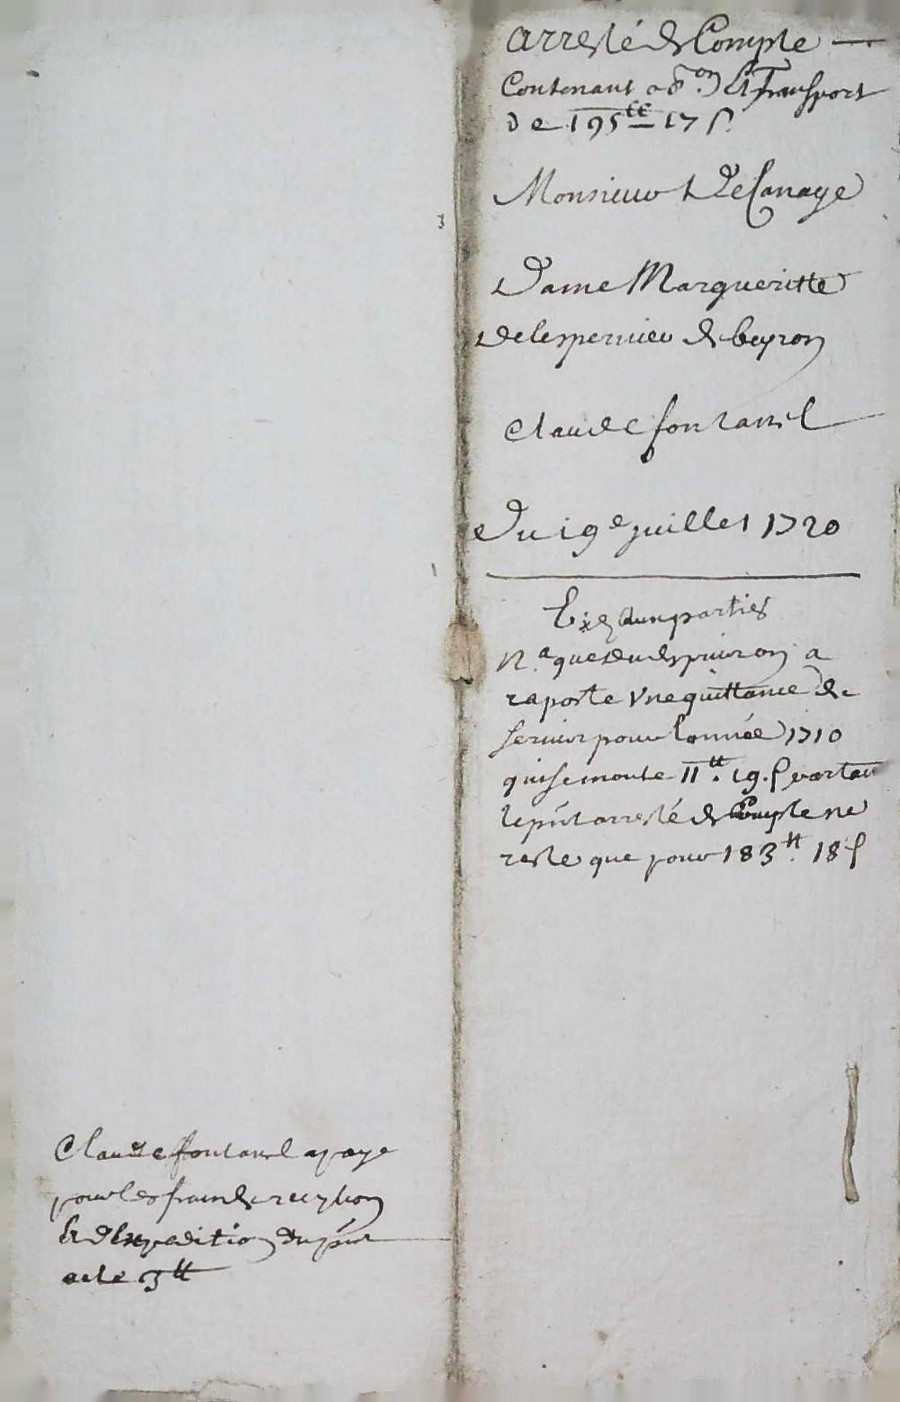 arresté de Compte
Contenant obon Et Transport
De 195tt 17s
Monsieur DeCanaye
Dame Margueritte
de lespernieu de beyron
Claude fontanel
Du 19e juillet 1720
Ex.x des parties
Na que a
raporte Vne quittance de
pour l'année 1710
qui se monte 11tt 19s partan
le pnt arresté de Compte ne
reste que pour 183tt 18s
Claude fontanel a paye
pour les frais de reception
Et d'Expedition du pnt
acte 3tt